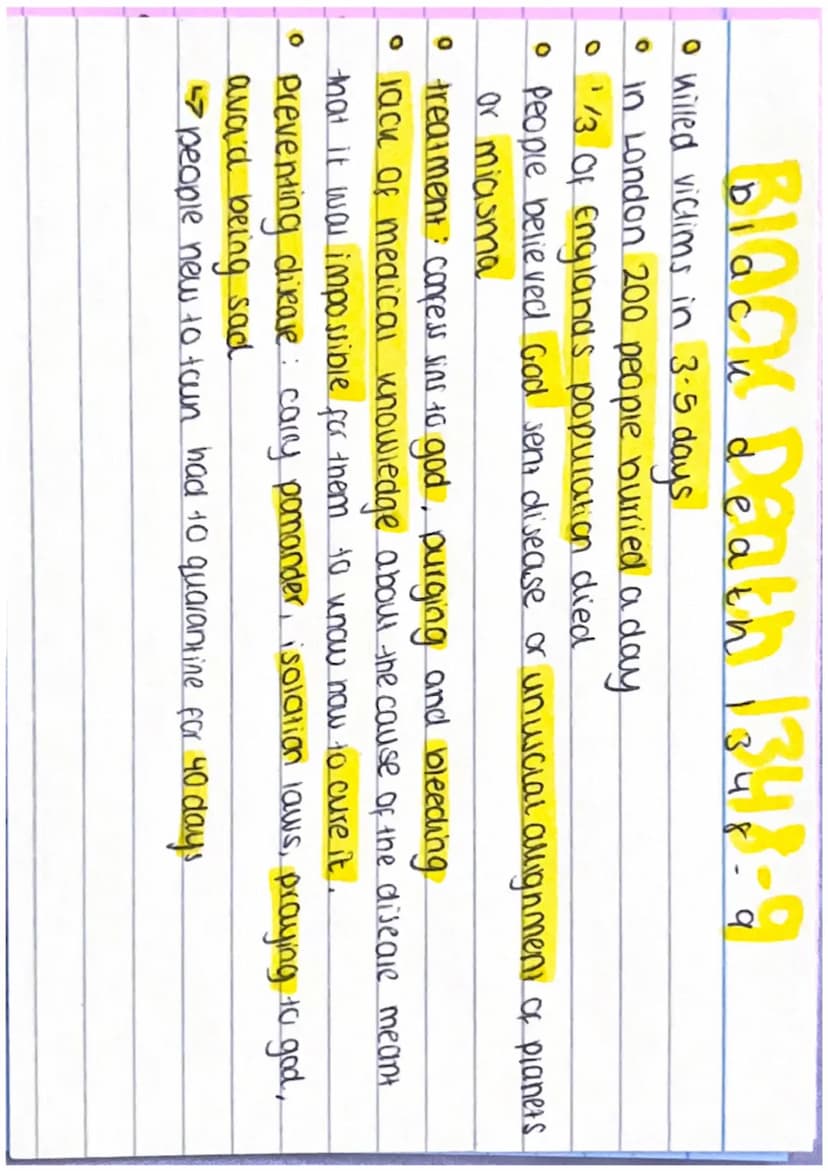 Black Death 1348-9
black death 1348-9
killed victims in 3-5 days
in London 200 people burried a day
1/3 of Englands population died
people believed God sent disease or unusual alignment of planets
or miasma
treatment: confess sins to god, purging and bleeding
lack of medical knowledge about the cause of the disease meant
that it was impossible for them to know how to cure it.
Preventing disease: carry pomander, isolation laws, praying to god,
avoid being sad
↳ people new to town had to quarantine for 40 days